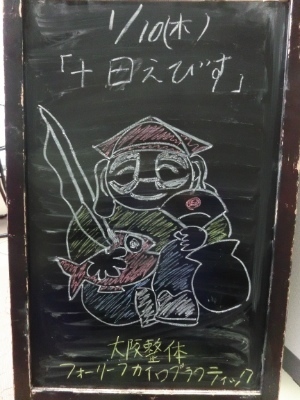 1/10(木)
「十日えびす」
大阪整体
フォーリーフカイロプラクティック